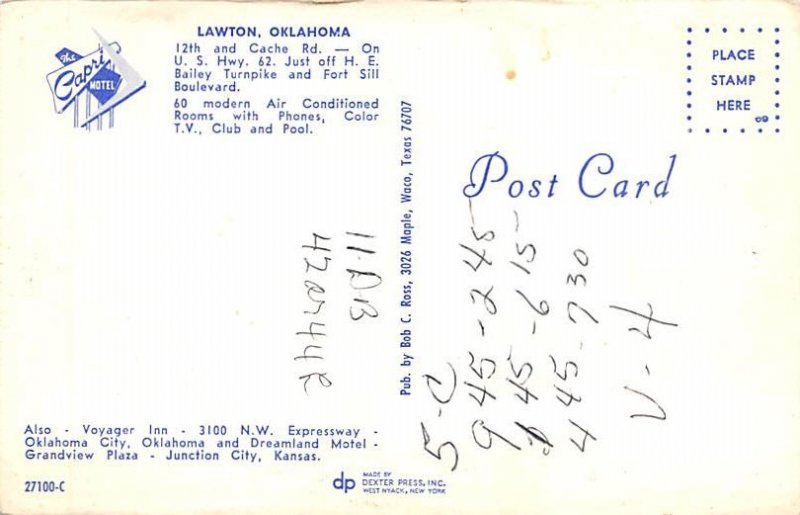 The
Capri
MOTEL
LAWTON, OKLAHOMA
12th and Cache Rd. — On
U. S. Hwy. 62. Just off H. E.
Bailey Turnpike and Fort Sill
Boulevard.
60 modern Air Conditioned
Rooms with Phones, Color
T.V., Club and Pool.
PLACE
STAMP
HERE
Post Card
Pub. by Bob C. Ross, 3026 Maple, Waco, Texas 76707
5-C
945-245
445-730
V-4
Also - Voyager Inn - 3100 N.W. Expressway -
Oklahoma City, Oklahoma and Dreamland Motel -
Grandview Plaza - Junction City, Kansas.
27100-C
dp
MADE BY
DEXTER PRESS, INC.
WEST NYACK, NEW YORK